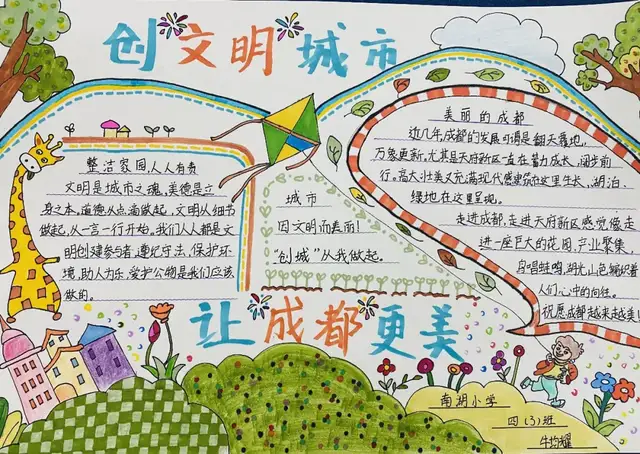 创文明城市
整洁家园,人人有责
文明是城市之魂,美德是立
身之本。道德从点滴做起,文明从细节
做起,从一言一行开始。我们人人都是文
明创建参与者,遵纪守法、保护环
境、助人为乐、爱护公物是我们应该
做的。
城市
因文明而美丽!
“创城”从我做起。
美丽的成都
近几年,成都的发展可谓是翻天落地,
万象更新,尤其是天府新区一直在蓄力成长、阔步前
行。高大壮美又充满现代感建筑在这里生长,湖泊、
绿地在这里呈现。
走进成都,走进天府新区感觉像走
进一座巨大的花园,产业聚集,
鸟唱蛙鸣,湖光山色铺织着
人们心中的向往。
祝愿成都越来越美!
让成都更美
南湖小学
四(3)班
牛均耀